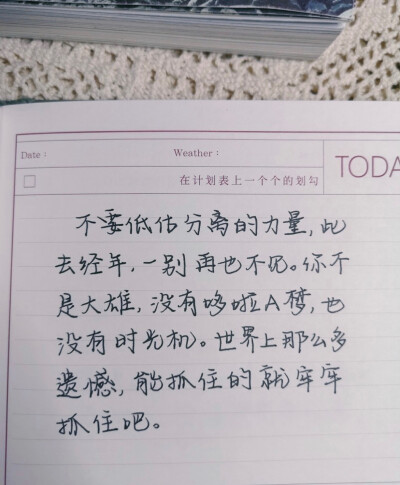 Date：
Weather：
TODA
在计划表上一个个的划勾
不要低估分离的力量,此
去经年,一别再也不见。你不
是大雄,没有哆啦A梦,也
没有时光机。世界上那么多
遗憾,能抓住的就牢牢
抓住吧。